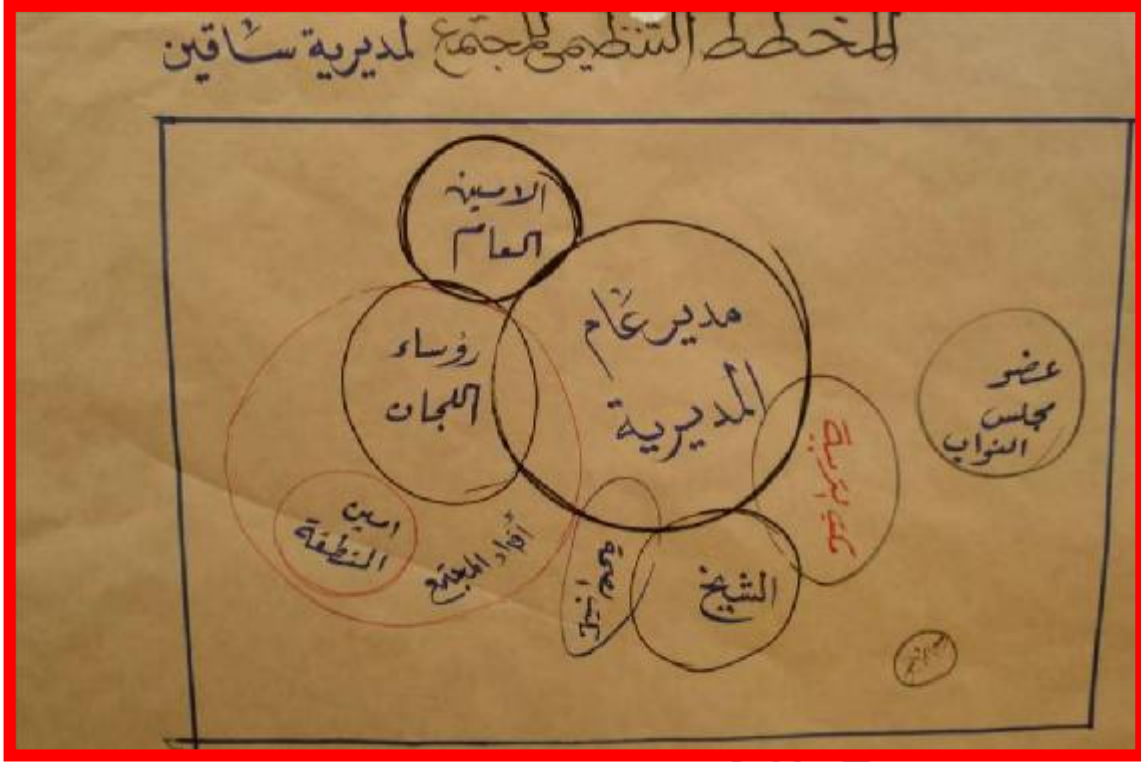 المخطط التنظيمي للمجتمع لمديرية ساقين
الامين
العام
مدير عام
المديرية
رؤساء
اللجان
عضو
مجلس
النواب
مكتب التربية
امين
المنطقة
أفراد المجتمع
مكتب الصحة
الشيخ